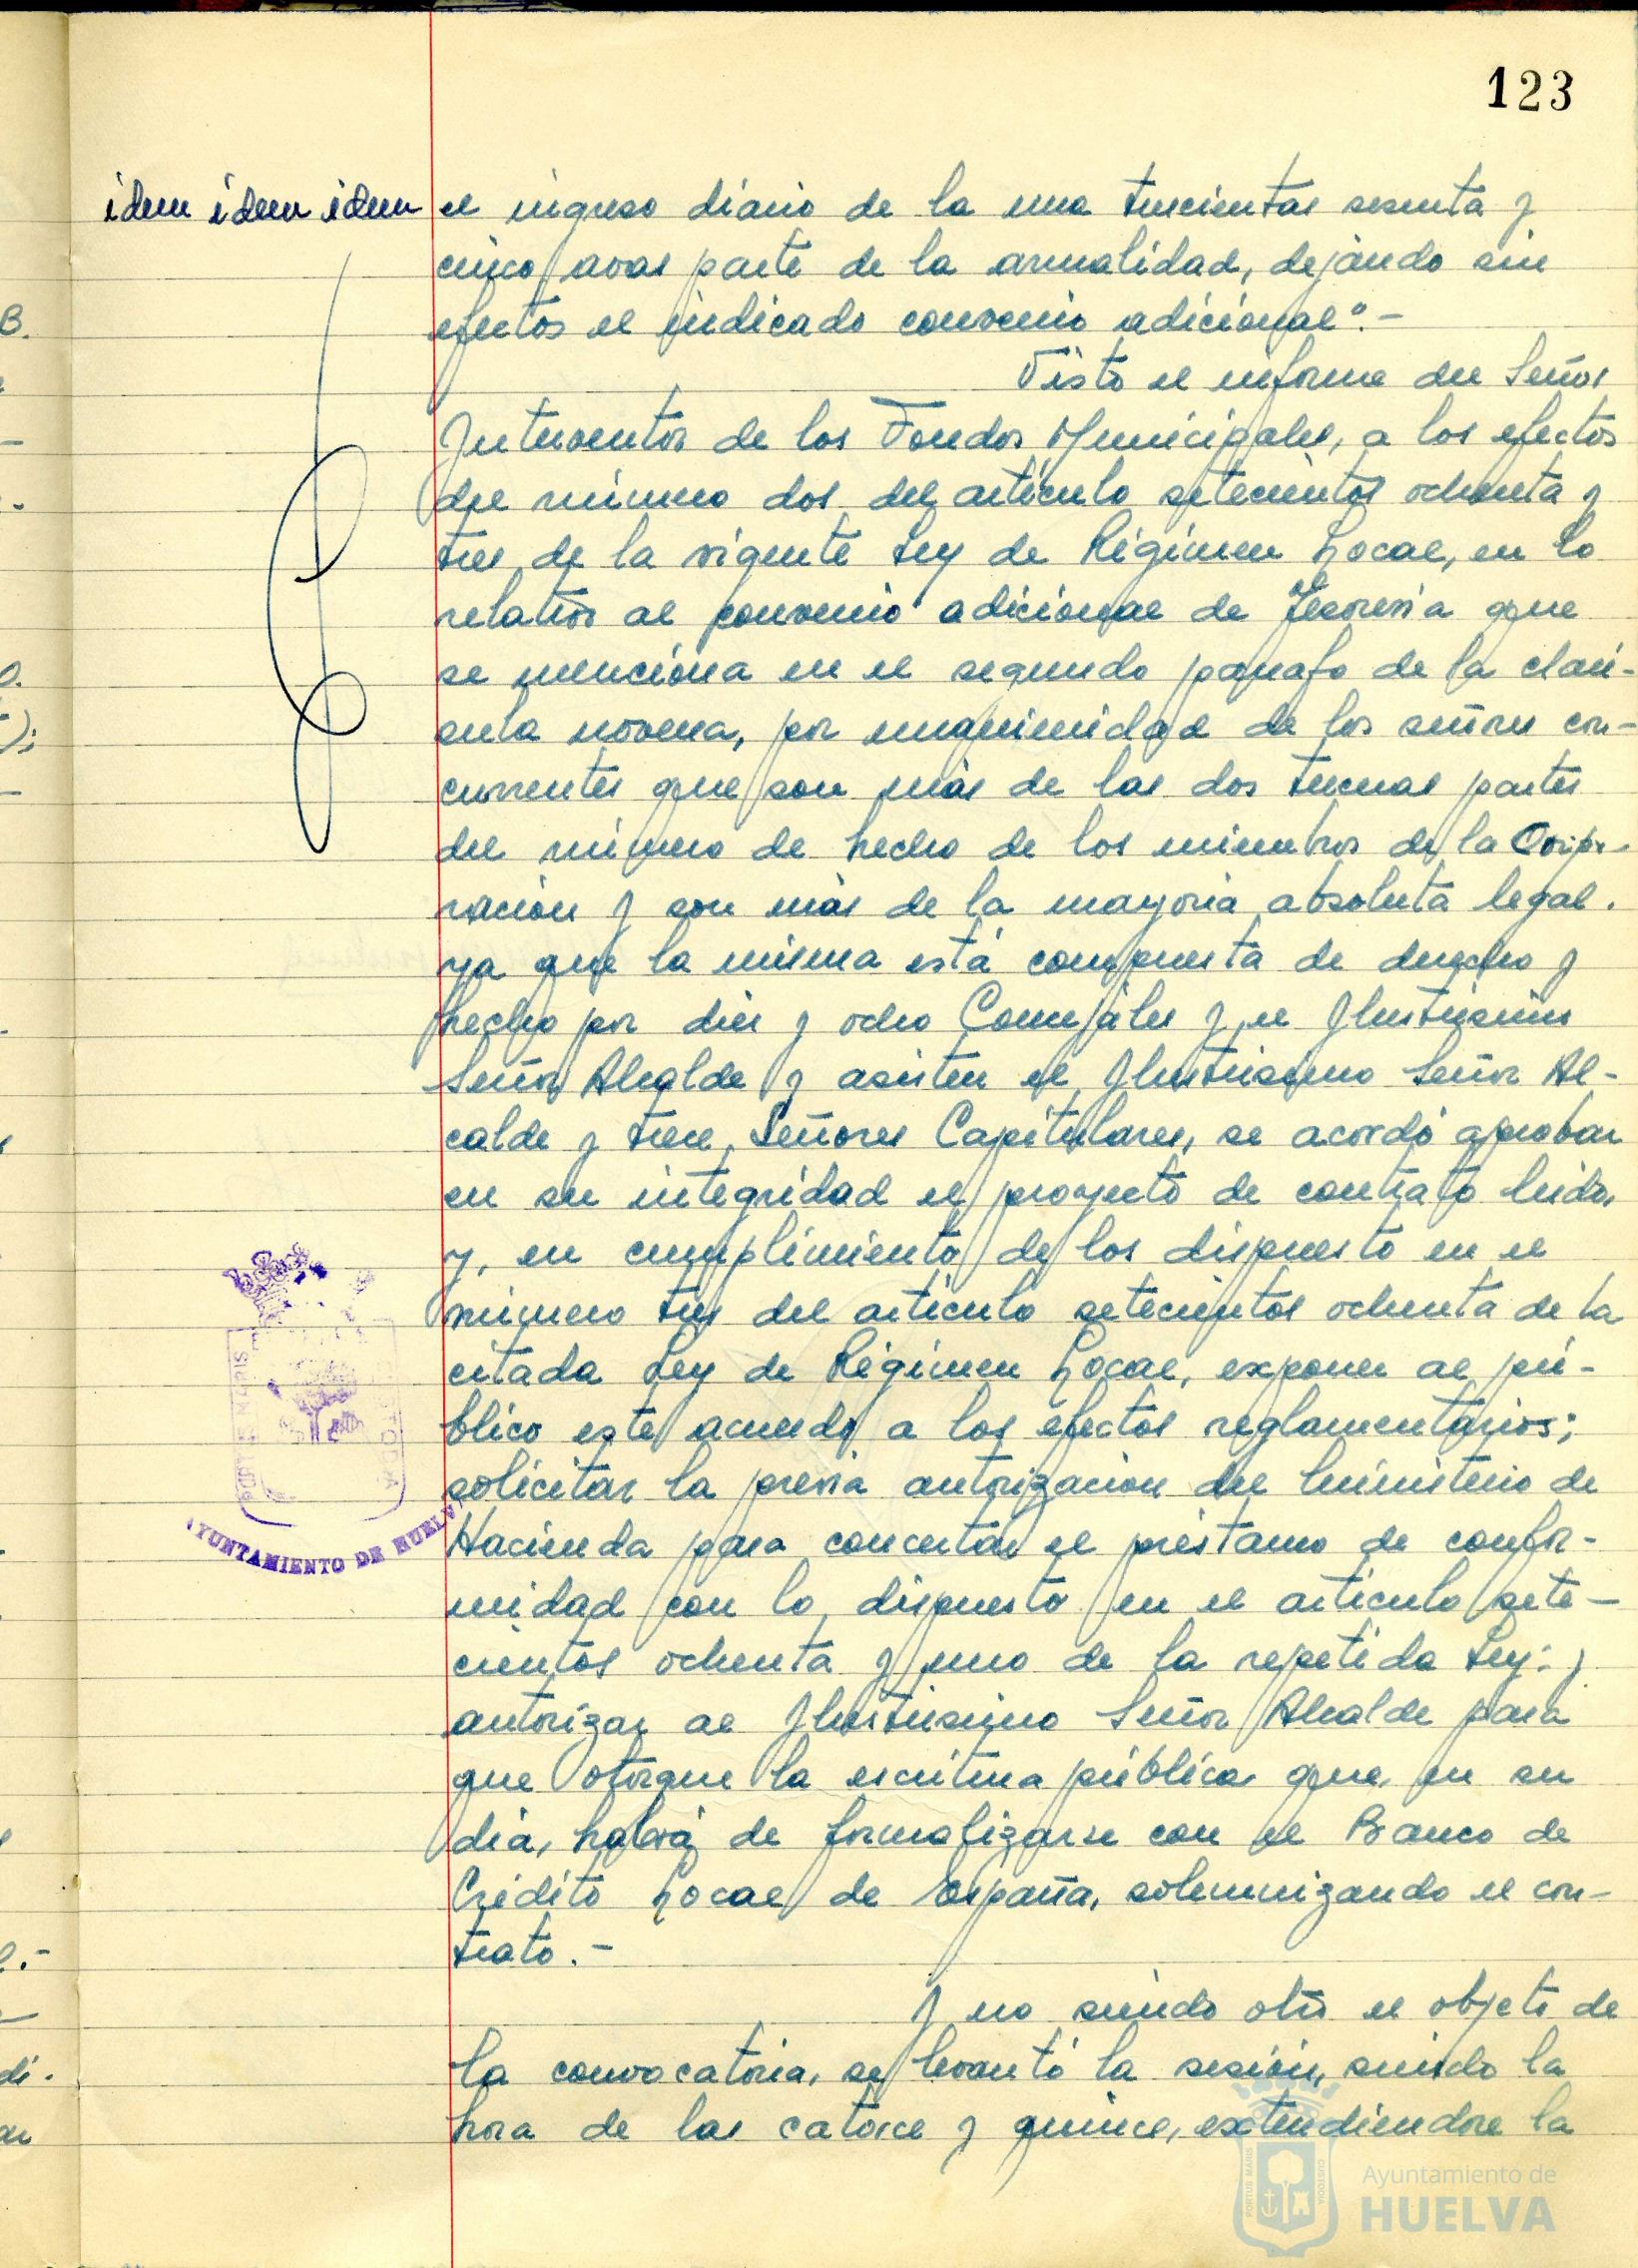 123
idem idem idem
el ingreso diario de la una trescientas sesenta y
cinco avas parte de la anualidad, dejando sin
efectos el indicado convenio adicional".-
Visto el informe del Señor
Interventor de los Fondos Municipales, a los efectos
del número dos del artículo setecientos ochenta y
tres de la vigente Ley de Régimen Local, en lo
relativo al convenio adicional de Tesorería que
se menciona en el segundo párrafo de la cláu-
sula novena, por unanimidad de los señores con-
currentes que son más de las dos terceras partes
del número de hecho de los miembros de la Corpo-
ración y son más de la mayoría absoluta legal.
ya que la misma está compuesta de derecho y
hecho por diez y ocho Concejales y el Ilustrísimo
Señor Alcalde y asisten el Ilustrísimo Señor Al-
calde y trece Señores Capitulares, se acordó aprobar
en su integridad el proyecto de contrato leido,
y, en cumplimiento de los dispuesto en el
número tres del artículo setecientos ochenta de la
citada Ley de Régimen Local, exponer al pú-
blico este acuerdo a los efectos reglamentarios;
solicitar la previa autorización del Ministerio de
Hacienda para concertar el préstamo de confor-
midad con lo dispuesto en el artículo sete-
cientos ochenta y uno de la repetida Ley; y
autorizar al Ilustrísimo Señor Alcalde para
que otorgue la escritura pública que, en su
día, habrá de formalizarse con el Banco de
Crédito Local de España, solemnizando el con-
trato.-
Y no siendo otro el objeto de
la convocatoria, se levantó la sesión, siendo la
hora de las catorce y quince, extendiendose la
PORTUS MARIS CUSTODIA
AYUNTAMIENTO DE HUELVA
Ayuntamiento de
HUELVA